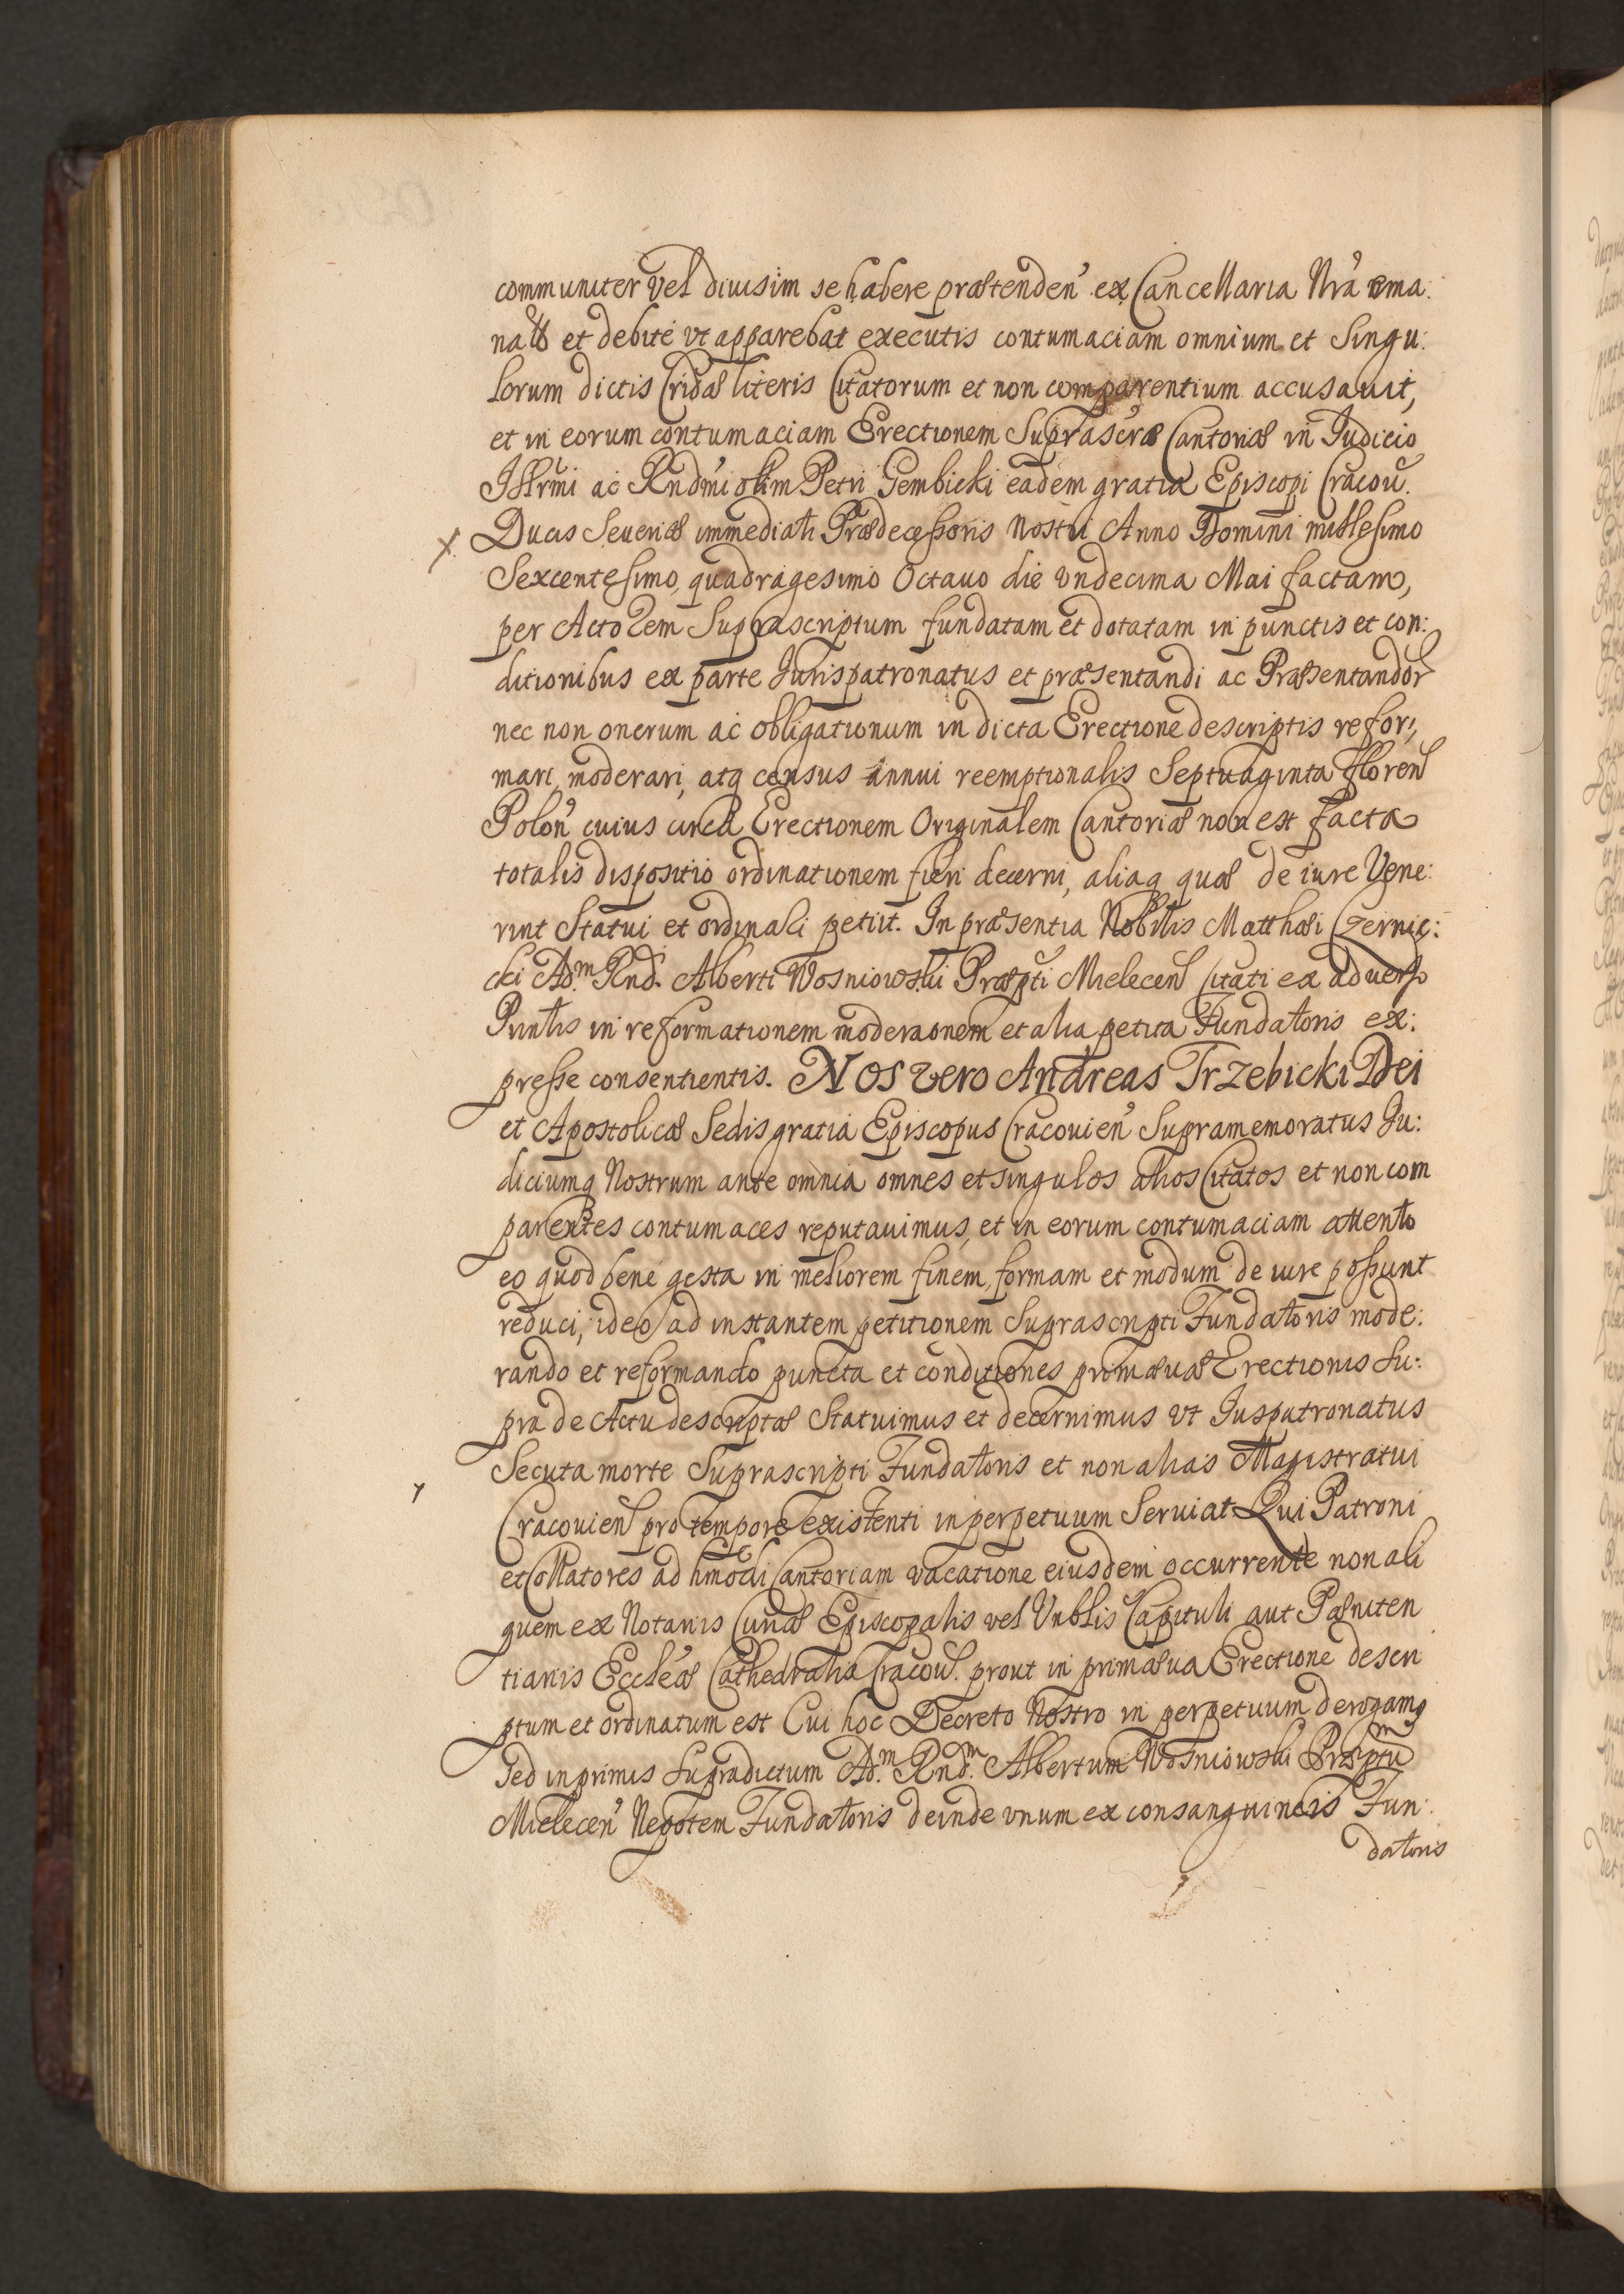 communiter vel diuisim se habere prætenden̄ ex Cancellaria Nr̄a ema:
natis et debite vt apparebat executis contumaciam omnium et Singu:
lorum dictis Cridæ literis Citatorum et non comparentium accusauit,
et in eorum contumaciam Erectionem Suprascr̄æ Cantoriæ in Judicio
Illr̄mi ac Rndm̄i olim Petri Gembicki eadem gratia Episcopi Cracou.
X Ducis Seueriæ immediati Prædecessoris Nostri Anno Domini millesimo
Sexcentesimo, quadragesimo Octauo die vndecima Mai factam,
per Actorem Suprascriptum fundatam et dotatam in punctis et con:
ditionibus ex parte Jurispatronatus et præsentandi ac Præsentandor
nec non onerum ac obligationum in dicta Erectione descriptis refor:
mari, moderari, atq census annui reemptionalis Septuaginta floren
Polon̄ cuius circa Erectionem Originalem Cantoriæ non est facta
totalis dispositio ordinationem fieri decerni, aliaq quæ de iure Vene:
rint Statui et ordinali petiit. In præsentia Nobilis Matthæi Czernic:
cki Ad.m Rnd. Alberti Wosniowski Præpti Mielecen Citati ex aduerso
Pnntis in reformationem moderaonem et alia petita Fundatoris ex:
presse consentientis. Nos vero Andreas Trzebicki Dei
et Apostolicæ Sedis gratia Episcopus Cracouien̄ Supramemoratus Ju:
diciumq Nostrum ante omnia omnes et singulos alios Citatos et non com
parentes contumaces reputauimus, et in eorum contumaciam attento
eo quod bene gesta in meliorem finem, formam et modum de iure possunt
reduci, ideo ad instantem petitionem Suprascripti Fundatoris mode:
rando et reformando puncta et conditiones primæuæ Erectionis Su:
pra de Actu descriptæ Statuimus et decernimus vt Juspatronatus
Secuta morte Suprascripti Fundatoris et non alias Magistratui
Cracouien pro tempore existenti in perpetuum Seruiat Qui Patroni
et Collatores ad hmōdi Cantoriam vacatione eiusdem occurrente non ali
quem ex Notariis Curiæ Episcopalis vel Vnblis Capituli aut Pæniten
tiariis Eccleæ Cathedralis Cracou. prout in primæua Erectione descri
ptum et ordinatum est Cui hoc Decreto Nostro in perpetuum derogamq
Sed inprimis Supradictum Ad.m Rnd.m Albertum Wosniowski Præptum
Mielecen̄ Nepotem Fundatoris deinde vnum ex consanguineis Fun:
datoris